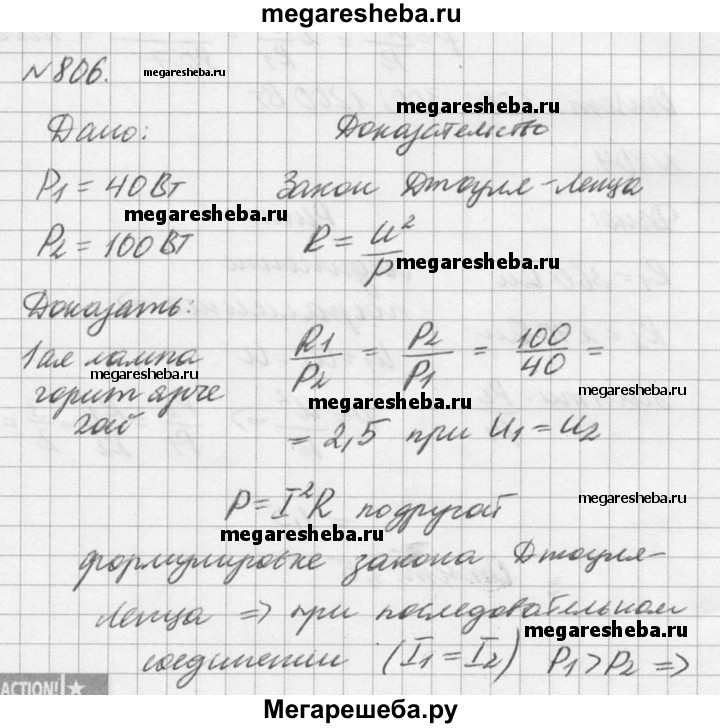 megaresheba.ru
№806. megaresheba.ru
megaresheba.ru
Дано: Доказательство
P1 = 40 Вт Закон Джоуля-Ленца
megaresheba.ru
P2 = 100 Вт R = U²/P
megaresheba.ru
Доказать:
1ая лампа R1/P2 = P2/P1 = 100/40 =
megaresheba.ru
горит ярче megaresheba.ru
megaresheba.ru
2ой = 2,5 при U1 = U2
P = I²R по другой
megaresheba.ru
megaresheba.ru
формулировке закона Джоуля-
Ленца => при последовательном
megaresheba.ru
соединении (I1 = I2) P1 > P2 =>
ACTION!
Мегарешеба.ру